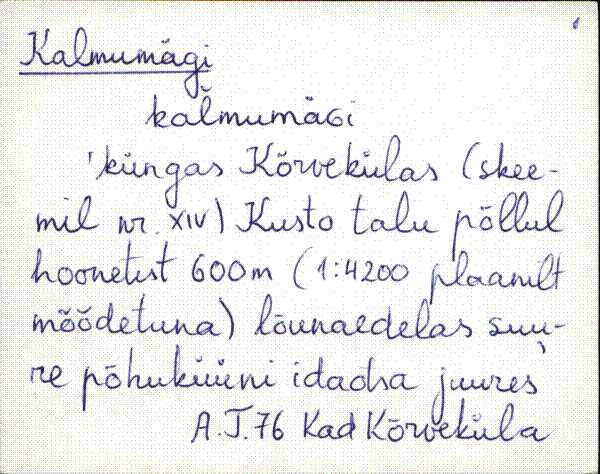 Kalmumägi
kalmumäGi
'küngas Kõrvekülas (skee-
mil nr. XIV) Kusto talu põllul
hoonetest 600m (1:4200 plaanilt
mõõdetuna) lõunaedelas suu-
re põhuküüni idaotsa juures'
A.J.76 Kad Kõrveküla